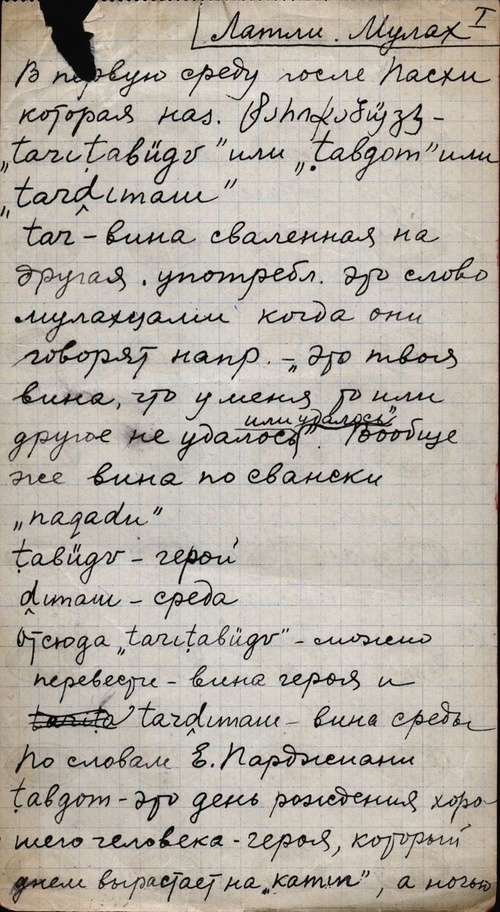 Латли. Мулах I
В первую среду после Пасхи
которая наз.
„tarıṭabügv" или „ṭavdom" или
„tard̂ımaш"
tar – вина сваленная на
другая. употребл. это слово
мулахцами когда они
говорят напр. – „это твоя
вина, что у меня то или
или удалось"
другое не удалось". Вообще
же вина по свански
„naqadu"
ṭabügv – герой
d̂ımaш – среда
Отсюда „tarıṭabügv" – можно
перевести – вина героя и
tard̂ımaш – вина среды
По словам Е. Парджиани
ṭavdom – это день рождения хоро
шего человека – героя, который
днем вырастает на „катт", а ночью